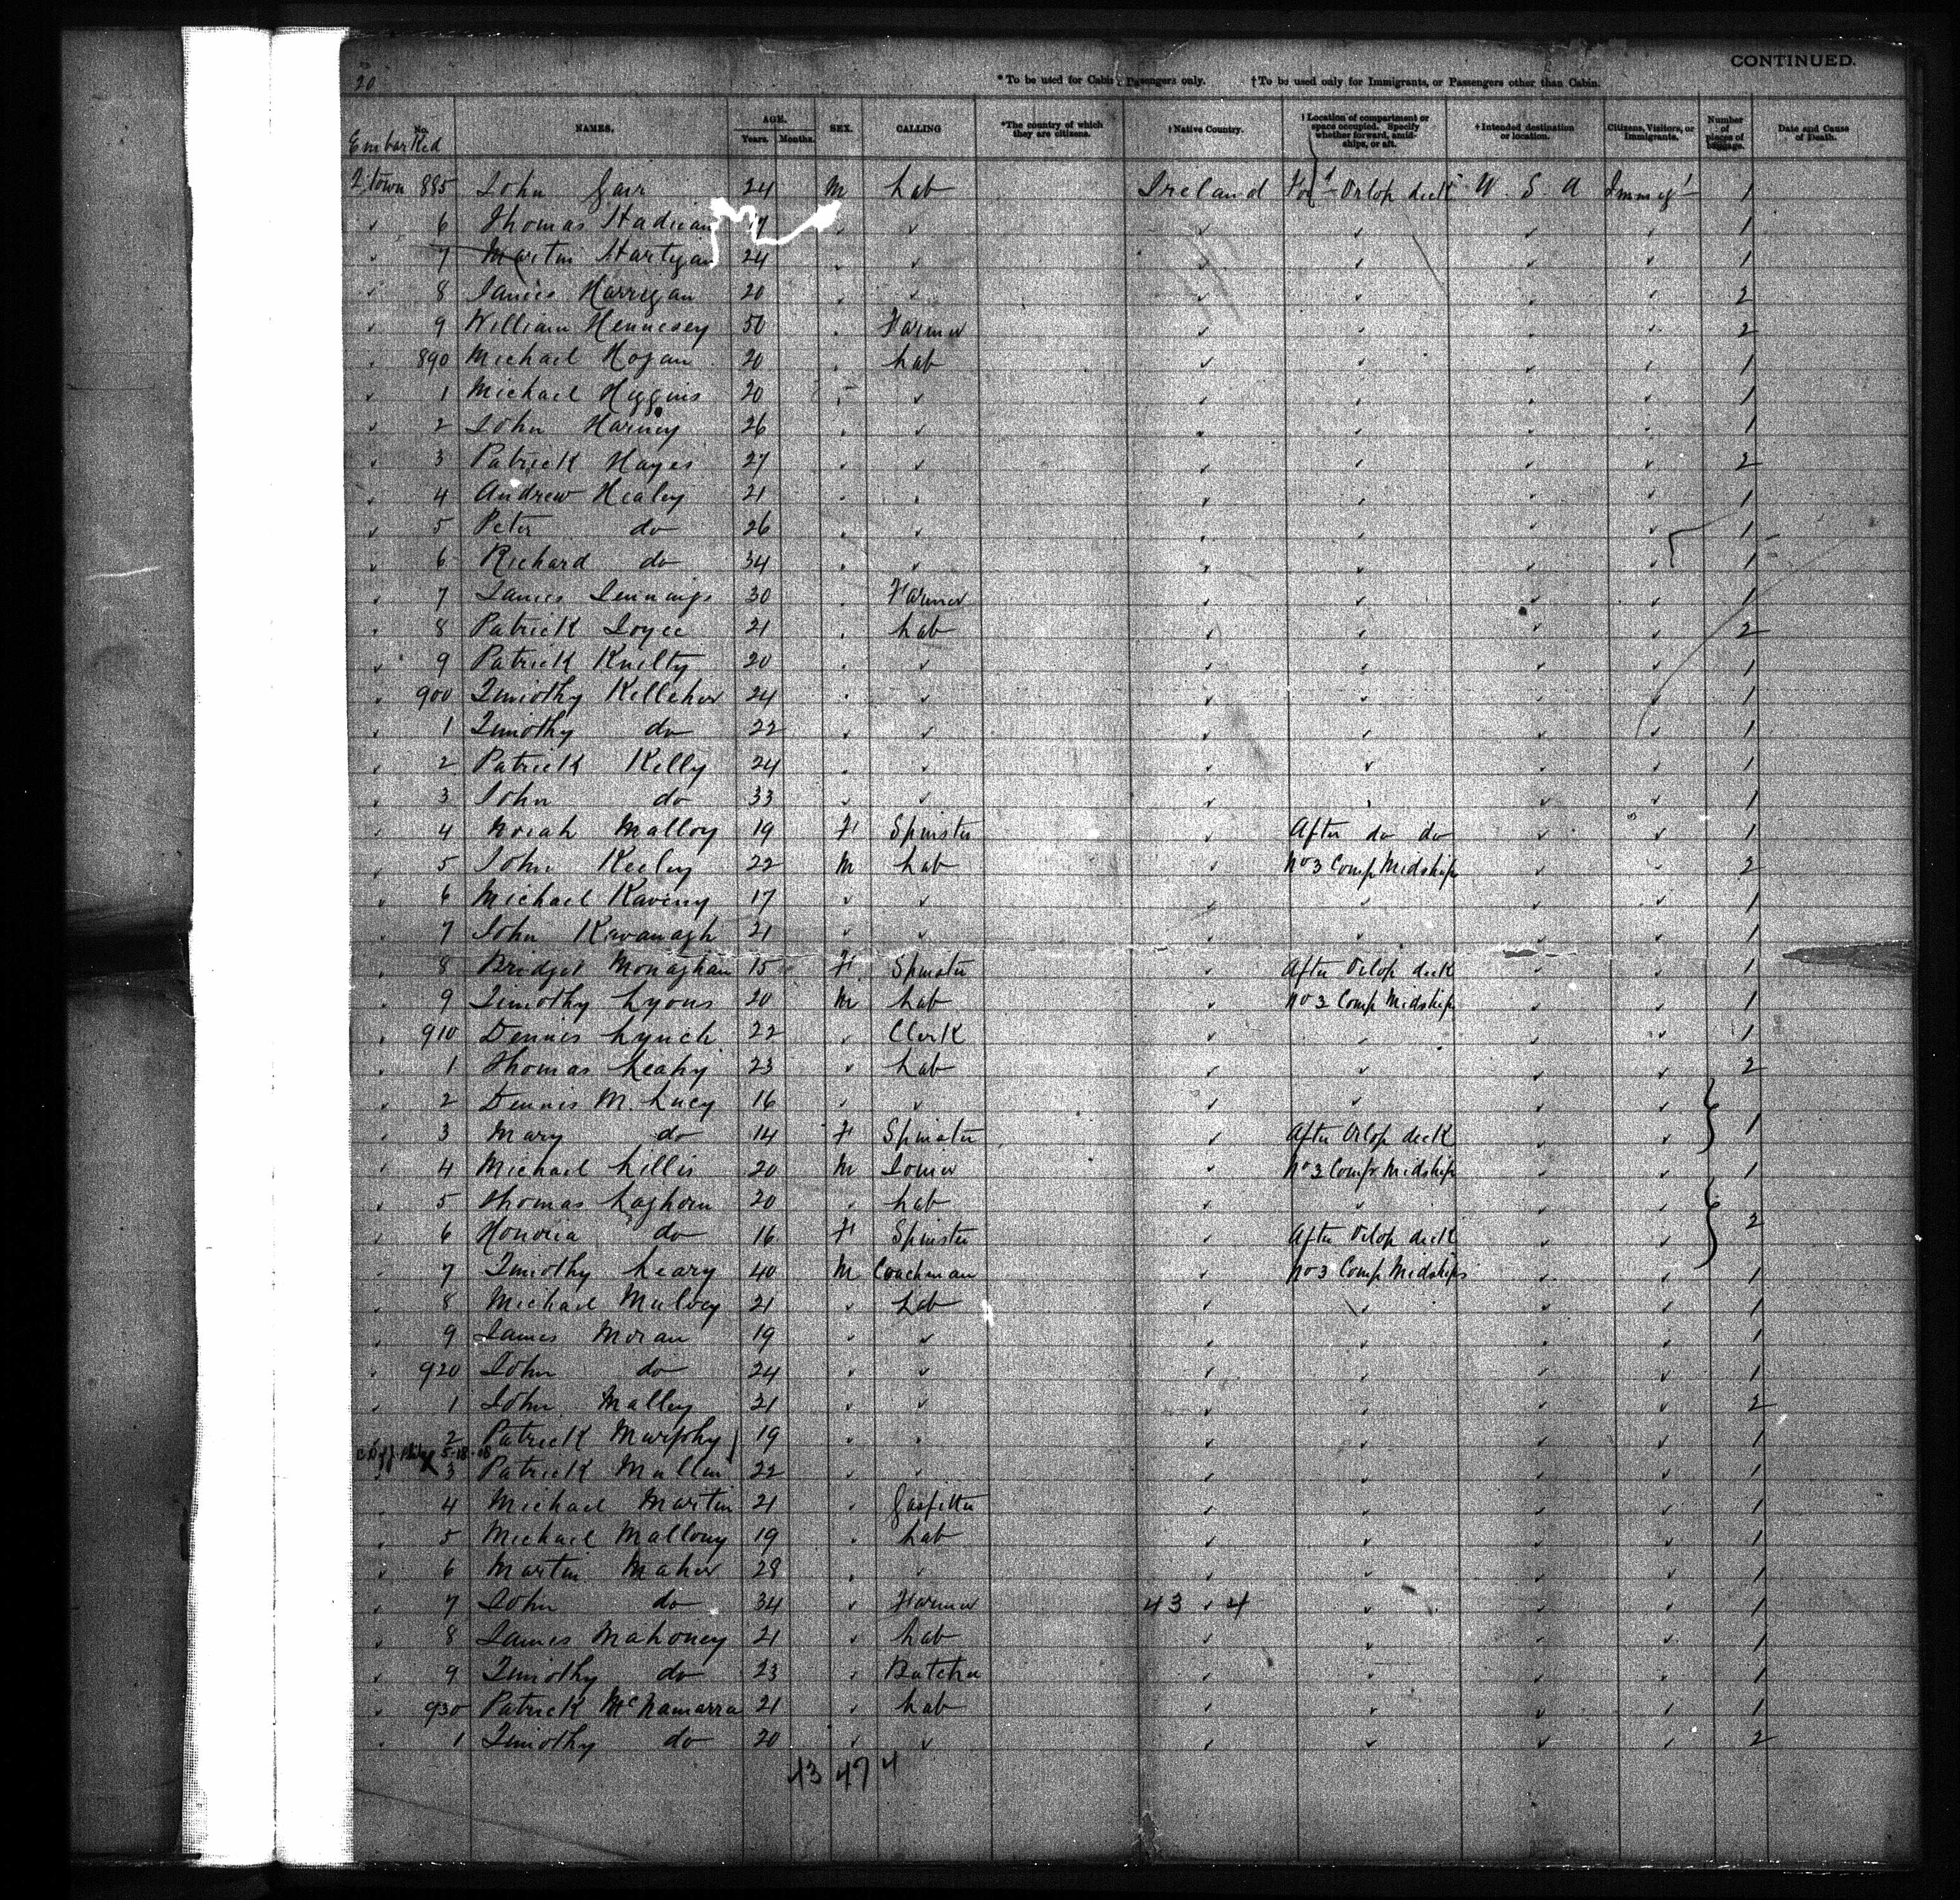 CONTINUED.
20
* To be used for Cabin Passengers only. † To be used only for Immigrants, or Passengers other than Cabin.
No. NAMES. AGE. Years. Months. SEX. CALLING *The country of which they are citizens. †Native Country. †Location of compartment or space occupied. Specify whether forward, amidships, or aft. †Intended destination or location. Citizens, Visitors, or Immigrants. Number of pieces of baggage. Date and Cause of Death.
Embarked
Q'town 885 John 24 M Lab Ireland For'd Orlop deck U. S. A Immgt 1
✓ 6 Thomas ✓ ✓ ✓ ✓ ✓ 1
✓ 7 Martin Hartigan 24 ✓ ✓ ✓ ✓ ✓ 1
✓ 8 James Harrigan 20 ✓ ✓ ✓ ✓ ✓ 2
✓ 9 William Hennesey 50 Farmer ✓ ✓ ✓ ✓ 2
890 Michael Hogan 20 Lab ✓ ✓ ✓ ✓ 1
✓ 1 Michael Higgins 20 ✓ ✓ ✓ ✓ ✓ 1
✓ 2 John Harney 26 ✓ ✓ ✓ ✓ ✓ 1
✓ 3 Patrick Hayes 27 ✓ ✓ ✓ ✓ ✓ 2
✓ 4 Andrew Healey 21 ✓ ✓ ✓ ✓ 1
✓ 5 Peter do 26 ✓ ✓ ✓ ✓ ✓ 1
✓ 6 Richard do 34 ✓ ✓ ✓ ✓ ✓ 1
✓ 7 James Jennings 30 Farmer ✓ ✓ ✓ ✓ 1
✓ 8 Patrick Joyce 21 Lab ✓ ✓ ✓ ✓ 2
✓ 9 Patrick Kuilty 20 ✓ ✓ ✓ ✓ ✓ 1
✓ 900 Timothy Kelleher 24 ✓ ✓ ✓ ✓ ✓ 1
✓ 1 Timothy do 22 ✓ ✓ ✓ ✓ ✓ ✓ 1
✓ 2 Patrick Kelly 24 ✓ ✓ ✓ ✓ ✓ 1
✓ 3 John do 33 ✓ ✓ ✓ ✓ ✓ 1
✓ 4 Norah Malloy 19 F Spinster ✓ After do do ✓ ✓ 1
✓ 5 John Keeley 22 M Lab ✓ No 3 Comp Midships ✓ ✓ 2
✓ 6 Michael Kaveny 17 ✓ ✓ ✓ ✓ ✓ ✓ 1
✓ 7 John Kavanagh 21 ✓ ✓ ✓ ✓ ✓ ✓ 1
✓ 8 Bridget Monaghan 15 F Spinster ✓ After Orlop deck ✓ ✓ 1
✓ 9 Timothy Lyons 20 M Lab ✓ No 3 Comp Midships ✓ ✓ 1
✓ 910 Dennis Lynch 22 ✓ Clerk ✓ ✓ ✓ ✓ 1
✓ 1 Thomas Leahy 23 ✓ Lab ✓ ✓ ✓ ✓ 2
✓ 2 Dennis M. Lucy 16 ✓ ✓ ✓ ✓ ✓ ✓
✓ 3 Mary do 14 F Spinster ✓ After Orlop deck ✓ ✓ 1
✓ 4 Michael Lillis 20 M Joiner ✓ No 3 Comp Midships ✓ ✓ 1
✓ 5 Thomas Laghorn 20 ✓ Lab ✓ ✓ ✓ ✓
✓ 6 Honoria do 16 F Spinster ✓ After Orlop deck ✓ ✓ 2
✓ 7 Timothy Leary 40 M Coachman ✓ No 3 Comp Midships ✓ ✓ 1
✓ 8 Michael Mulvey 21 ✓ Lab ✓ ✓ ✓ ✓ 1
✓ 9 James Moran 19 ✓ ✓ ✓ ✓ ✓ ✓ 1
✓ 920 John do 24 ✓ ✓ ✓ ✓ ✓ ✓ 1
✓ 1 John Malley 21 ✓ ✓ ✓ ✓ ✓ ✓ 2
2 Patrick Murphy 19 ✓ ✓ ✓ ✓ ✓ 1
5-18-08
X 3 Patrick Mullin 22 ✓ ✓ ✓ ✓ ✓ ✓ 1
4 Michael Martin 21 ✓ Gasfitter ✓ ✓ ✓ ✓ 1
✓ 5 Michael Mallony 19 ✓ Lab ✓ ✓ ✓ ✓ 1
✓ 6 Martin Maher 28 ✓ ✓ ✓ ✓ ✓ ✓ 1
✓ 7 John do 34 ✓ Farmer 43 ✓ 4 ✓ ✓ ✓ 1
✓ 8 James Mahoney 21 ✓ Lab ✓ ✓ ✓ ✓ 1
✓ 9 Timothy do 23 ✓ Butcher ✓ ✓ ✓ ✓ 1
✓ 930 Patrick McNamarra 21 ✓ Lab ✓ ✓ ✓ ✓ 1
✓ 1 Timothy do 20 ✓ ✓ ✓ ✓ ✓ ✓ 2
43 47 4